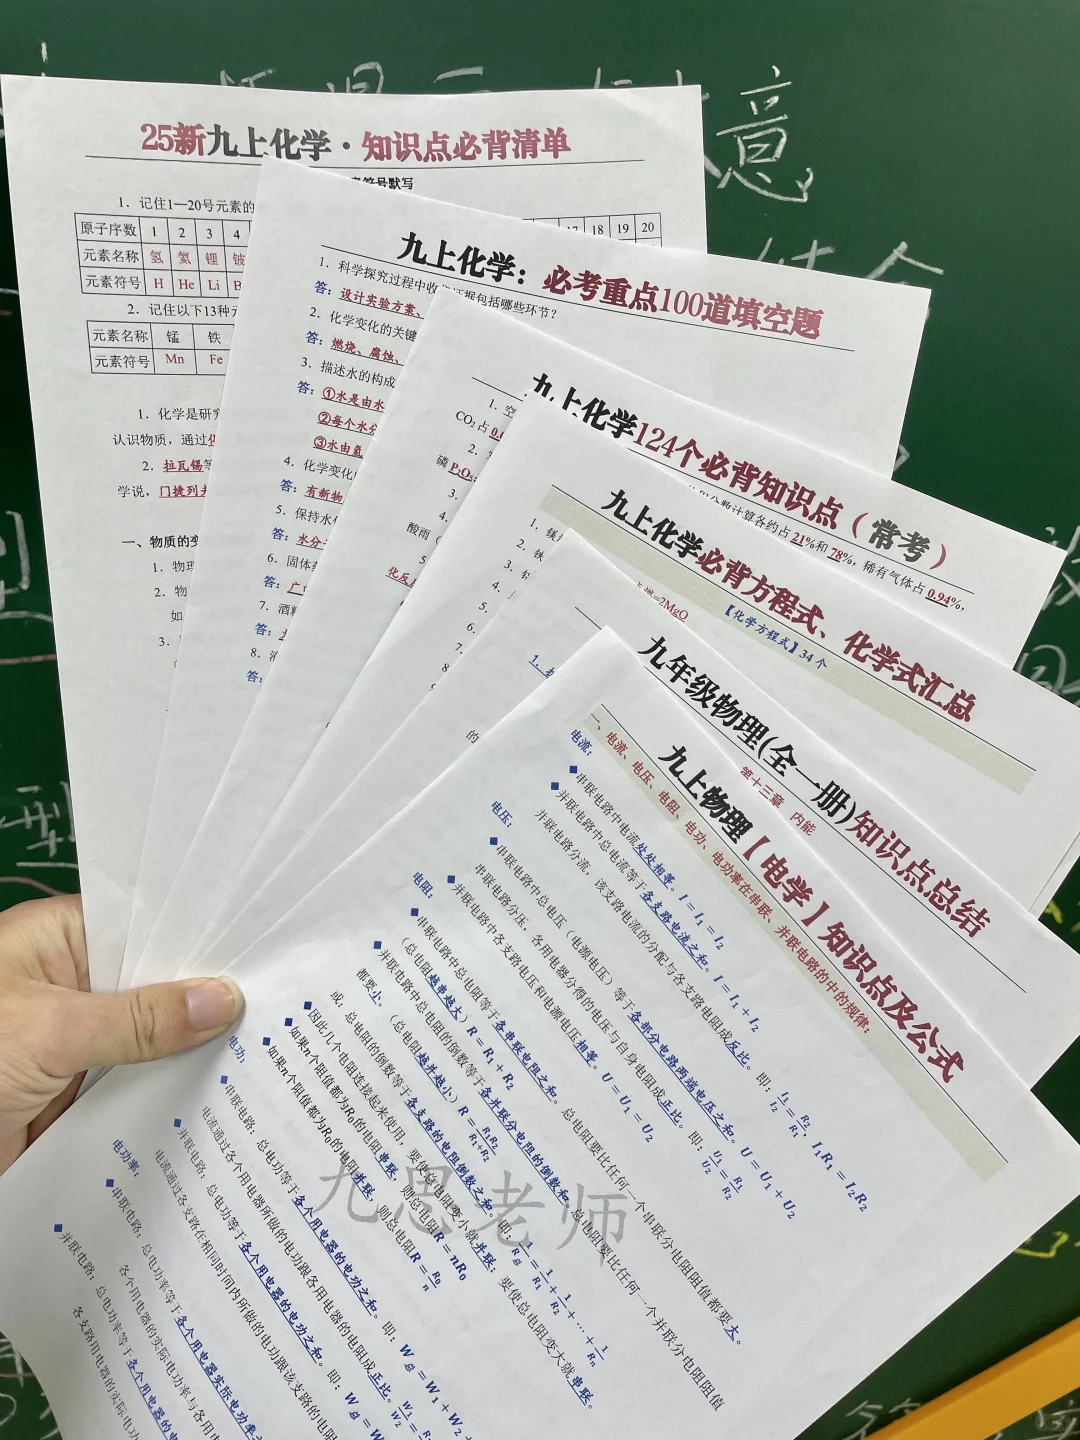 意
25新九上化学·知识点必背清单
符号默写
1．记住1—20号元素的
原子序数 1 2 3 4 17 18 19 20
元素名称 氢 氦 锂 铍
元素符号 H He Li B
2．记住以下13种元
元素名称 锰 铁
元素符号 Mn Fe
1．化学是研究
认识物质，通过化
2．拉瓦锡等
学说，门捷列夫
一、物质的变
1．物理
2．物
如
3．
九上化学：必考重点100道填空题
1．科学探究过程中收集证据包括哪些环节？
答：设计实验方案、
2．化学变化的关键
答：燃烧、腐蚀、
3．描述水的构成
答：①水是由水
②每个水分
③水由氢
4．化学变化
答：有新物
5．保持水化
答：水分子
6．固体药
答：广口
7．酒精
答：
8．
答：
九上化学124个必背知识点（常考）
1．空
分数计算各约占21%和78%，稀有气体占0.94%，
CO₂占0.0
2．
磷P₂O₅
3．
4．
酸雨（
5．
化反应
九上化学必背方程式、化学式汇总
【化学方程式】34个
1．镁
=2MgO
2．铁
3．
4．
5．
6．
7．
8．
九年级物理(全一册)知识点总结
第十三章 内能
1．
的
九上物理【电学】知识点及公式
一、电流、电压、电阻、电功、电功率在串联、并联电路的中的规律：
电流：
串联电路中电流处处相等。I＝I₁＝I₂
并联电路中总电流等于各支路电流之和。I＝I₁＋I₂
并联电路分流，该支路电流的分配与各支路电阻成反比。即：I₁/I₂＝R₂/R₁，I₁R₁＝I₂R₂
电压：
串联电路中总电压（电源电压）等于各部分电路两端电压之和。U＝U₁＋U₂
串联电路分压，各用电器分得的电压与自身电阻成正比。即：U₁/U₂＝R₁/R₂
并联电路中各支路电压和电源电压相等。U＝U₁＝U₂
电阻：
串联电路中总电阻等于各串联电阻之和。总电阻要比任何一个串联分电阻阻值都要大。
（总电阻越串越大）R＝R₁＋R₂
并联电路中总电阻的倒数等于各并联分电阻的倒数和。总电阻要比任何一个并联分电阻阻值
都要小。（总电阻越并越小）R＝R₁R₂/R₁+R₂
或：总电阻的倒数等于各支路的电阻倒数之和。即：1/R总＝1/R₁＋1/R₂＋…＋1/Rn
因此几个电阻连接起来使用，要使总电阻变小就并联；要使总电阻变大就串联。
如果n个阻值都为R₀的电阻串联，则总电阻R＝nR₀
如果n个阻值都为R₀的电阻并联，则总电阻R＝R₀/n
电功：
串联电路：总电功等于各个用电器的电功之和。即：W总＝W₁＋W₂
电流通过各个用电器所做的电功跟各用电器的电阻成正比。W₁/W₂＝R₁/R₂
并联电路：总电功等于各个用电器的电功之和。即：W总＝W
电流通过各支路在相同时间内所做的电功跟该支路的电阻
电功率：
串联电路：总电功率等于各个用电器实际电功率
各个用电器的实际电功率与各用电
并联电路：总电功率等于各个用电器的电
各支路用电器的实际电功
九思老师